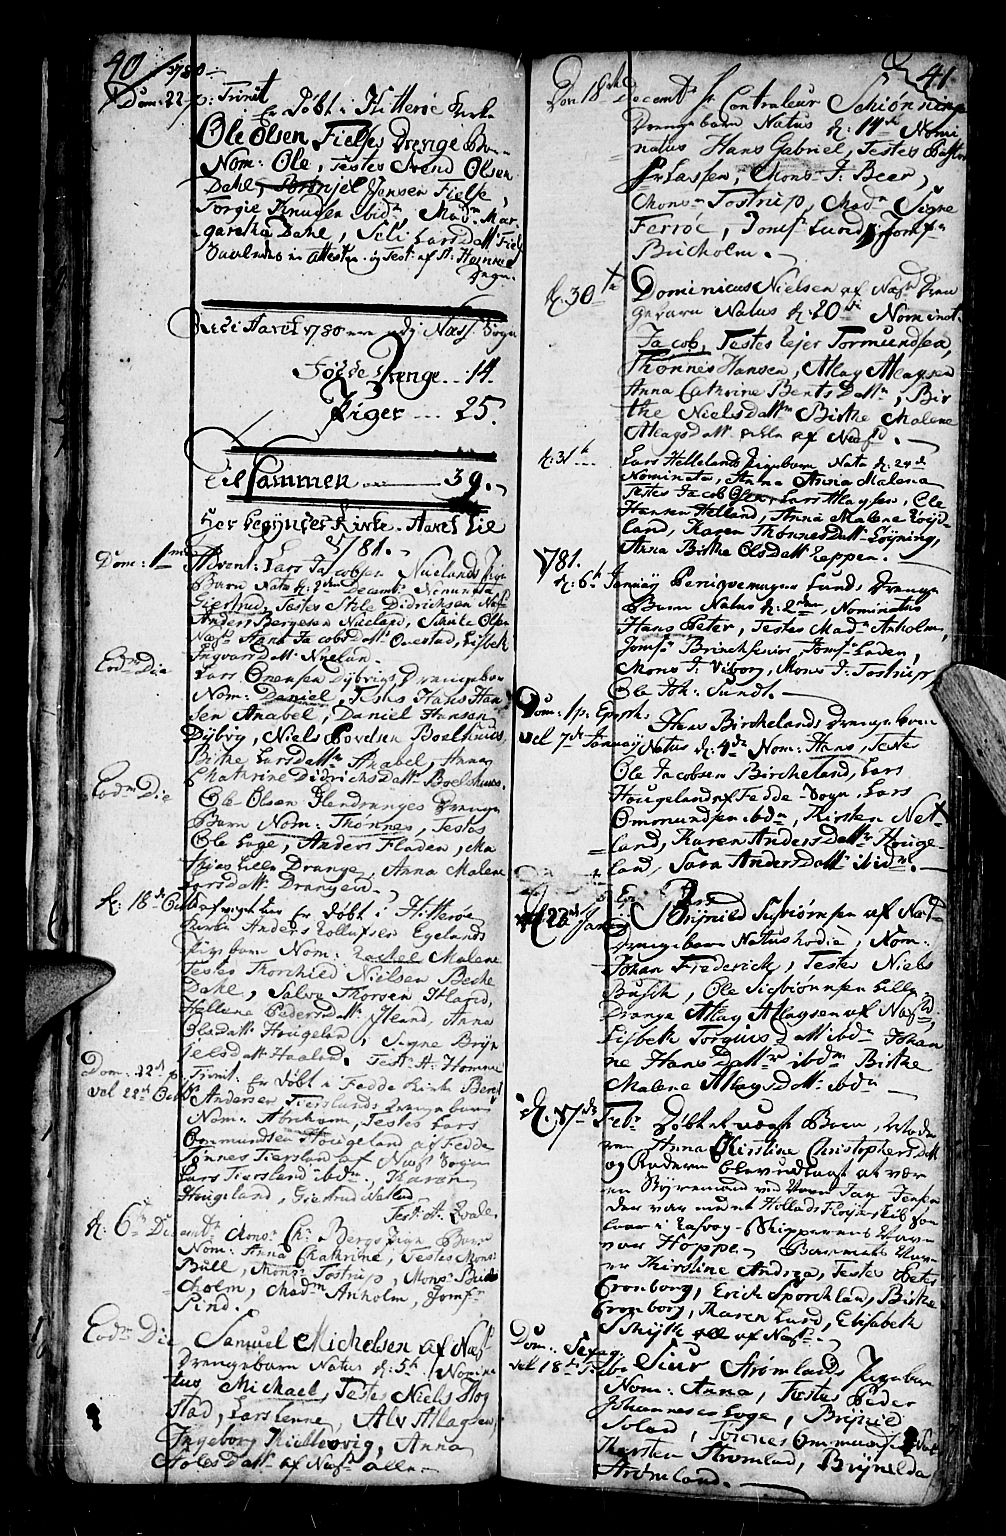 40 1780
Dom: 22 p: Trinit
Er Døbt i Hitterøe Kirke
Ole Olsen Fielses Drenge Ba
Nom: Ole, Testes Svend Olsen
Dahl, Jensen Fielse,
Torgie Knudsen ibid, Mad: Mar
garetha Dahl, Seli Larsdatt: Fiels
Attesten af H: Hommel
Degn
Udi Aaret 1780 ere udj Næss Sogn
Fødde Drenge .. 14.
Piger ... 25.
Til Sammen ___ 39.
Her begÿnder Kirke-Aaret til
1781.
Dom: 1ma
Advent: Lars Jacobsen Nuelands Pige
Barn Nata d: 2den Decemb: Nominata
Giertrud, Testes Atle Didrichsen Næss
Anders Bergesen Nueland, Olsen
Næss, Hans Jacobsdatt: Onestad, Lisbeth
Ingvarsdatt Nueland.
Eod: Die
Lars Dÿbvigs Drengebarn
Nom: Daniel, Testes Hans Han
sen Anabel, Daniel Hansen
Dÿbvig, Niels Boelhuus,
Birthe Larsdatt: Anabel, Anna
Chathrine Didrichsdatt: Boelhuus.
Eod: Die
Ole Olsen Hlendranges Drenge
Barn Nom: Thønnes, Testes
Ole Eege, Anders Fladen, Ma
thies Lille Drange, Anna Malene
Larsdatt: Drangeid.
d: 18de Octb
Er Døbt i Hitterøe
Kirke Anders Tollufsen Egelands
Pige barn Nom: Rachel Malene
Testes Thorchild Nielsen Beche
Dahl, Salve Thorsen Itland,
Hellene Pedersdatt: Itland, Anna
Olsdatt: Hougeland, Signe Brÿn
jelsdatt: Haaland. Test: H: Homme
Dom: 22de p: Trinit: Er Døbt i Fedde Kirke Bent
vel 22de Octb
Andersen Tierslands Drengebarn
Nom: Abraham, Testes Lars
Ommundsen Hougeland af Fedde
Tønnes Tiersland af Næss Sogn
Lars Tiersland ibdm, Karen
Hougeland, Giertrud Netland
Test: H: Qvale.
d: 6te Decemb: Mons: Ch: Bergs Pige Barn
Nom: Anna Chathrine, Testes Mons:
Büll, Mons: Tostrup, Mons: Buch
holm, Madm Anholm, Jomf:
Lind.
Eodm Die
Samuel Michelsen af Næss
Drengebarn Natus d: 5te / Nomina
tus Michael, Testes Niels Flog
stad, Lars Lenne, Alv Atlagsen,
Ingeborg Kiellevig, Anna
Atlesdatt: af Næss alle.
41.
Dom 18de Decembr: Hr Controleur Schiønnings
Drengebarn Natus d: 14de Nomi
natus Hans Gabriel, Testes Pastor
Hr Lassen, Mons: J: Beer,
Mons: Tostrup, Madm Signe
Ferrøe, Jomf: Lund, Jomf:
Bucholm.
d. 30te
Dominicus Nielsen af Næss Dren
gebarn Natus d: 20de Nominat:
Jacob, Testes Ejer Tormundsen,
Thønnes Hansen, Atlag Atlagsen,
Anna Cathrine Bentsdattr, Bir
the Nielsdattr Birthe Malene
Atlagsdatt: alle af Næss.
d: 31te
Lars Hellelands Pigebarn Nata d: 24de
Nominata, Anna Anna Malena
Testes Jacob Olsen, Lars Atlagsen, Ole
Hansen Helland, Anna Malene Loÿd
land, Karen Thønnesdatt: Løgning,
Anna Birthe Olsdatt: Eeppen.
1781.
d: 6te Januarÿ Lund, Drenge
Barn Natus d: 2den, Nominatus
Hans Peter, Testes Madm Anholm,
Jomf: , Jomf: Laden,
Mons: J: Viborg, Mons: J: Tostrup,
Ole Joh: Sundt.
Dom: 1 p: Epiph:
vel 7de Januarÿ
Hans Birchelands Drengebarn
Natus d: 4de Nom: Hans, Testes
Ole Jacobsen Bircheland, Lars
Hougeland af Fedde-Sogn, Lars
Ommundsen ibdm, Kirsten Net
land, Karen Andersdattr Houge
land, Sara Andersdatt: ibidm.
d 22de Januarÿ
Brÿnild Siviørnsen af Næs
Drengebarn Natus hodie, Nom:
Johan Frederick, Testes Niels
Busch, Ole Sigbiørnsen Lille
Drange Atlag Atlagsen af Næss,
Lisbeth Torgiusdatt ibdm Johan
ne Hansdattr ibidm Birthe
Malene Atlagsdatt: ibdm
d. 17de Febr: Døbt et uægte Barn, Mode
ren Anna Kirstine Christophersdatt
og Faderen blev udlagt at vær
en Stÿremand ved Navn Jan Jensen
der var med Hollands Fløÿte Lib som
laae i Eafvog - Skipperens Navn
var Hoppe. Barnets Navn
er Kirstine Andrea, Testes Peter
Cronborg, Erich Sporchland, Birthe
Cronborg, Karen Lund, Elisabeth
Schÿtte alle af Næss.
Dom: Sexag:
vel 18de Febr:
Siur Strømlands Pigebarn
Nom: Anna, Testes Peder
Johannesen Eege, Brÿnild
Ioland, Tønnes Ommundsen
Thorsten Strømland, Brÿnilda
Strømland.